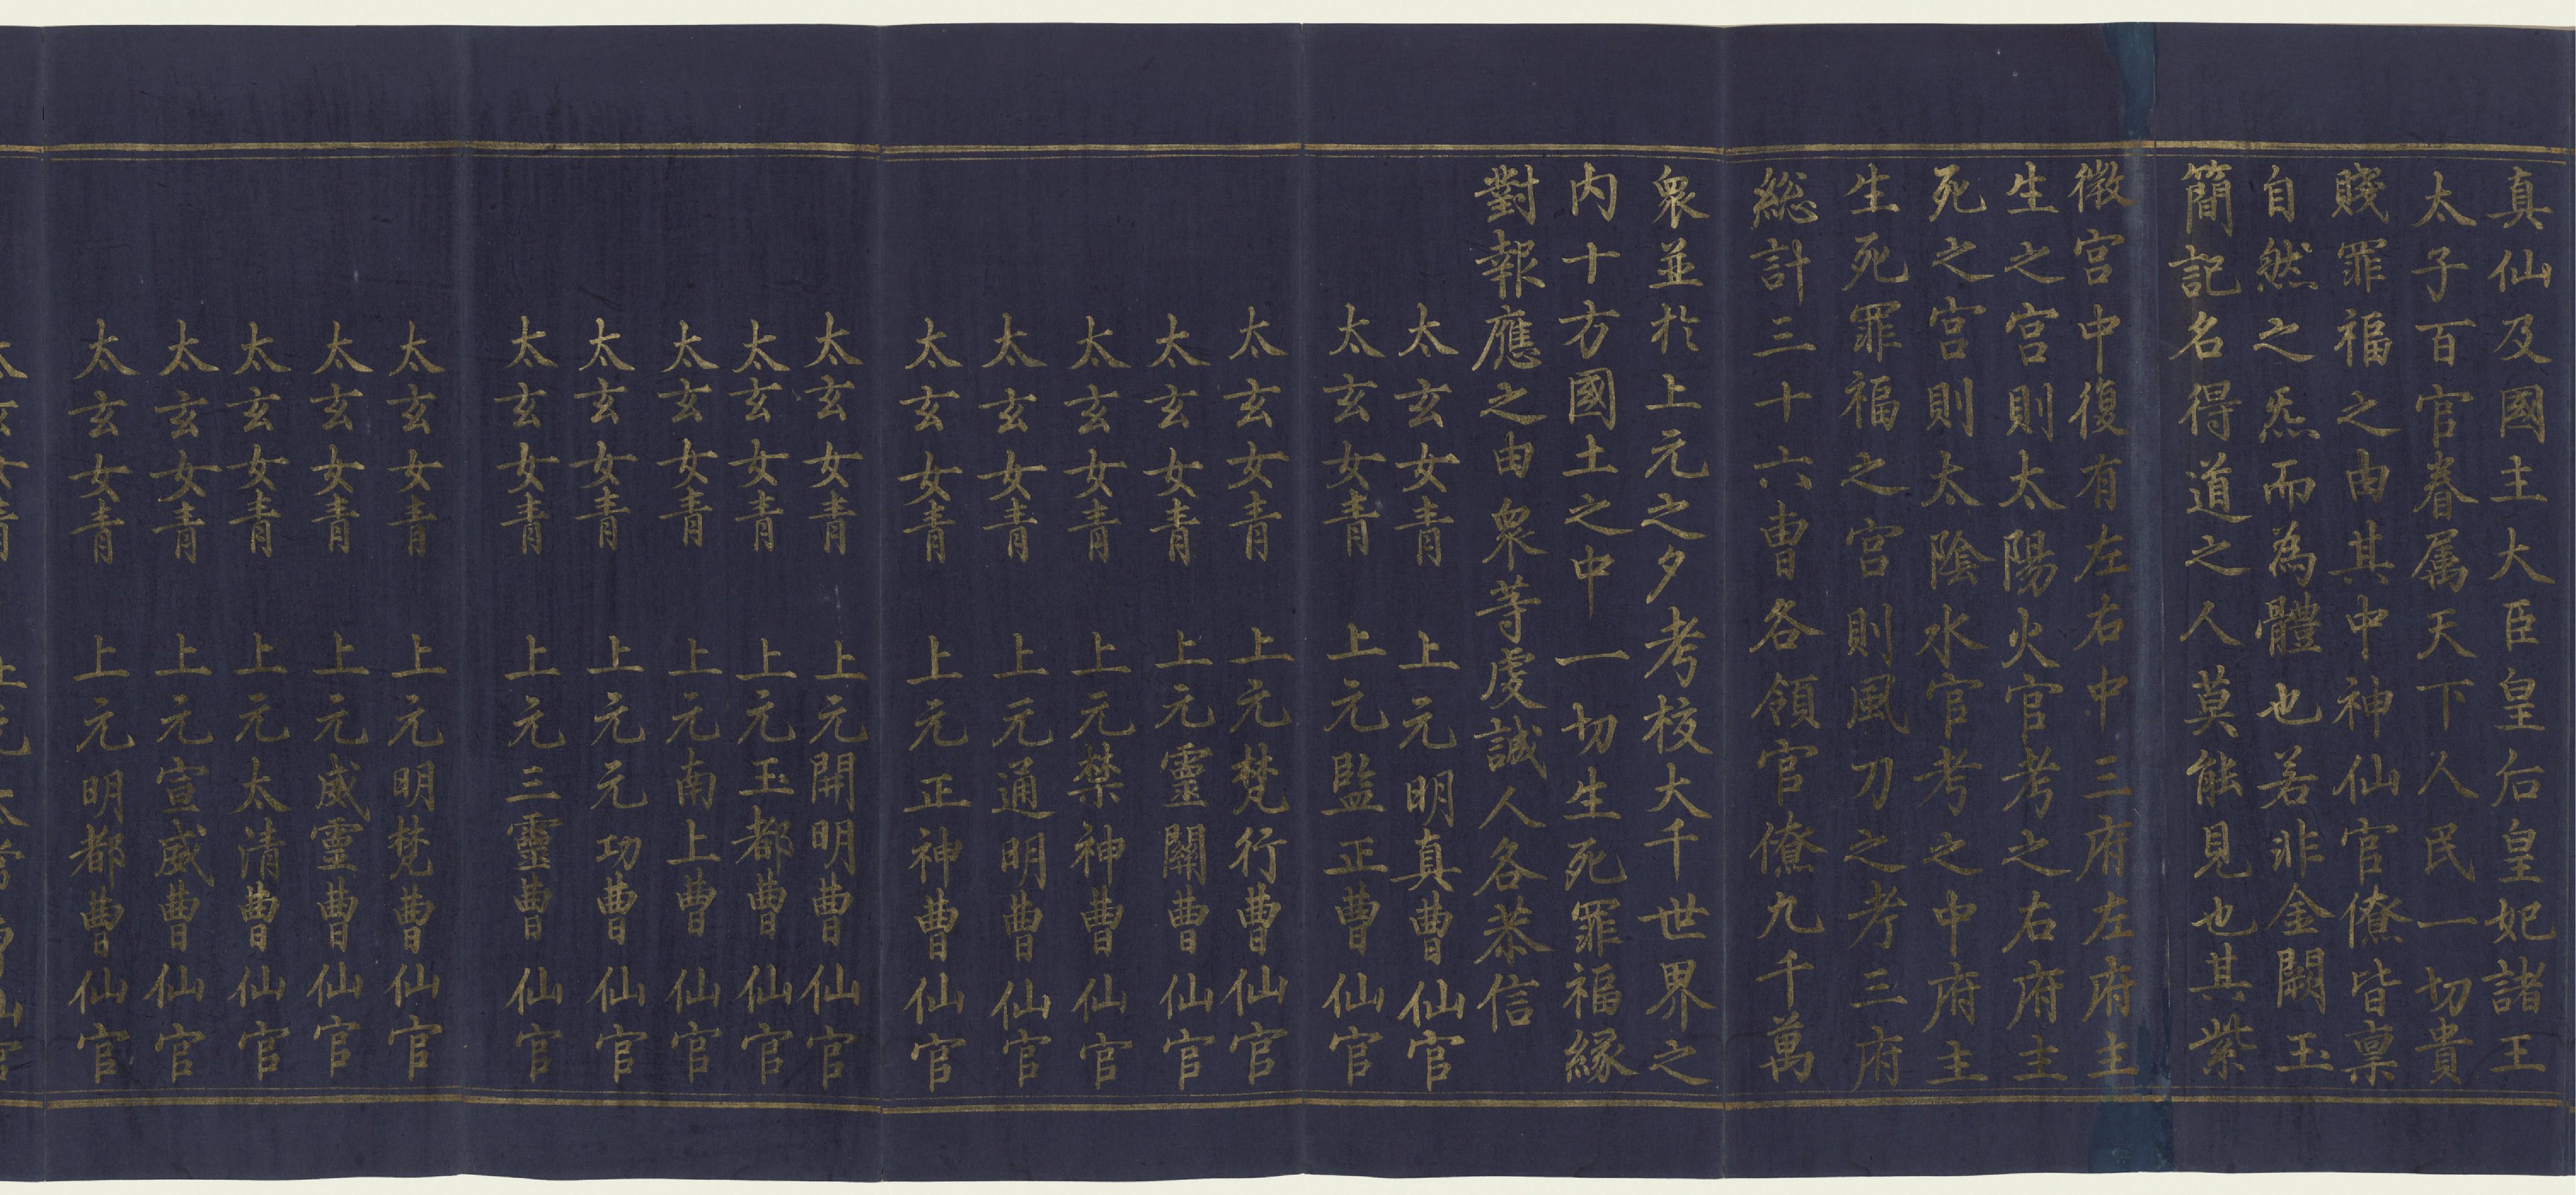 真仙及國主大臣皇后皇妃諸王
太子百官眷属天下人民一切貴
賤罪福之由其中神仙官僚皆禀
自然之炁而為體也若非金闕玉
簡記名得道之人莫能見也其紫
徴宫中復有左右中三府左府主
生之宫則太陽火官考之右府主
死之宫則太陰水官考之中府主
生死罪福之宫則風刀之考三府
総計三十六曹各領官僚九千萬
衆並於上元之夕考校大千世界之
内十方國土之中一切生死罪福緣
對報應之由衆等虔誠人各恭信
太玄女青 上元明真曹仙官
太玄女青 上元監正曹仙官
太玄女青 上元梵行曹仙官
太玄女青 上元靈關曹仙官
太玄女青 上元禁神曹仙官
太玄女青 上元通明曹仙官
太玄女青 上元正神曹仙官
太玄女青 上元開明曹仙官
太玄女青 上元玉都曹仙官
太玄女青 上元南上曹仙官
太玄女青 上元元功曹仙官
太玄女青 上元三靈曹仙官
太玄女青 上元明梵曹仙官
太玄女青 上元威靈曹仙官
太玄女青 上元太清曹仙官
太玄女青 上元宣威曹仙官
太玄女青 上元明都曹仙官